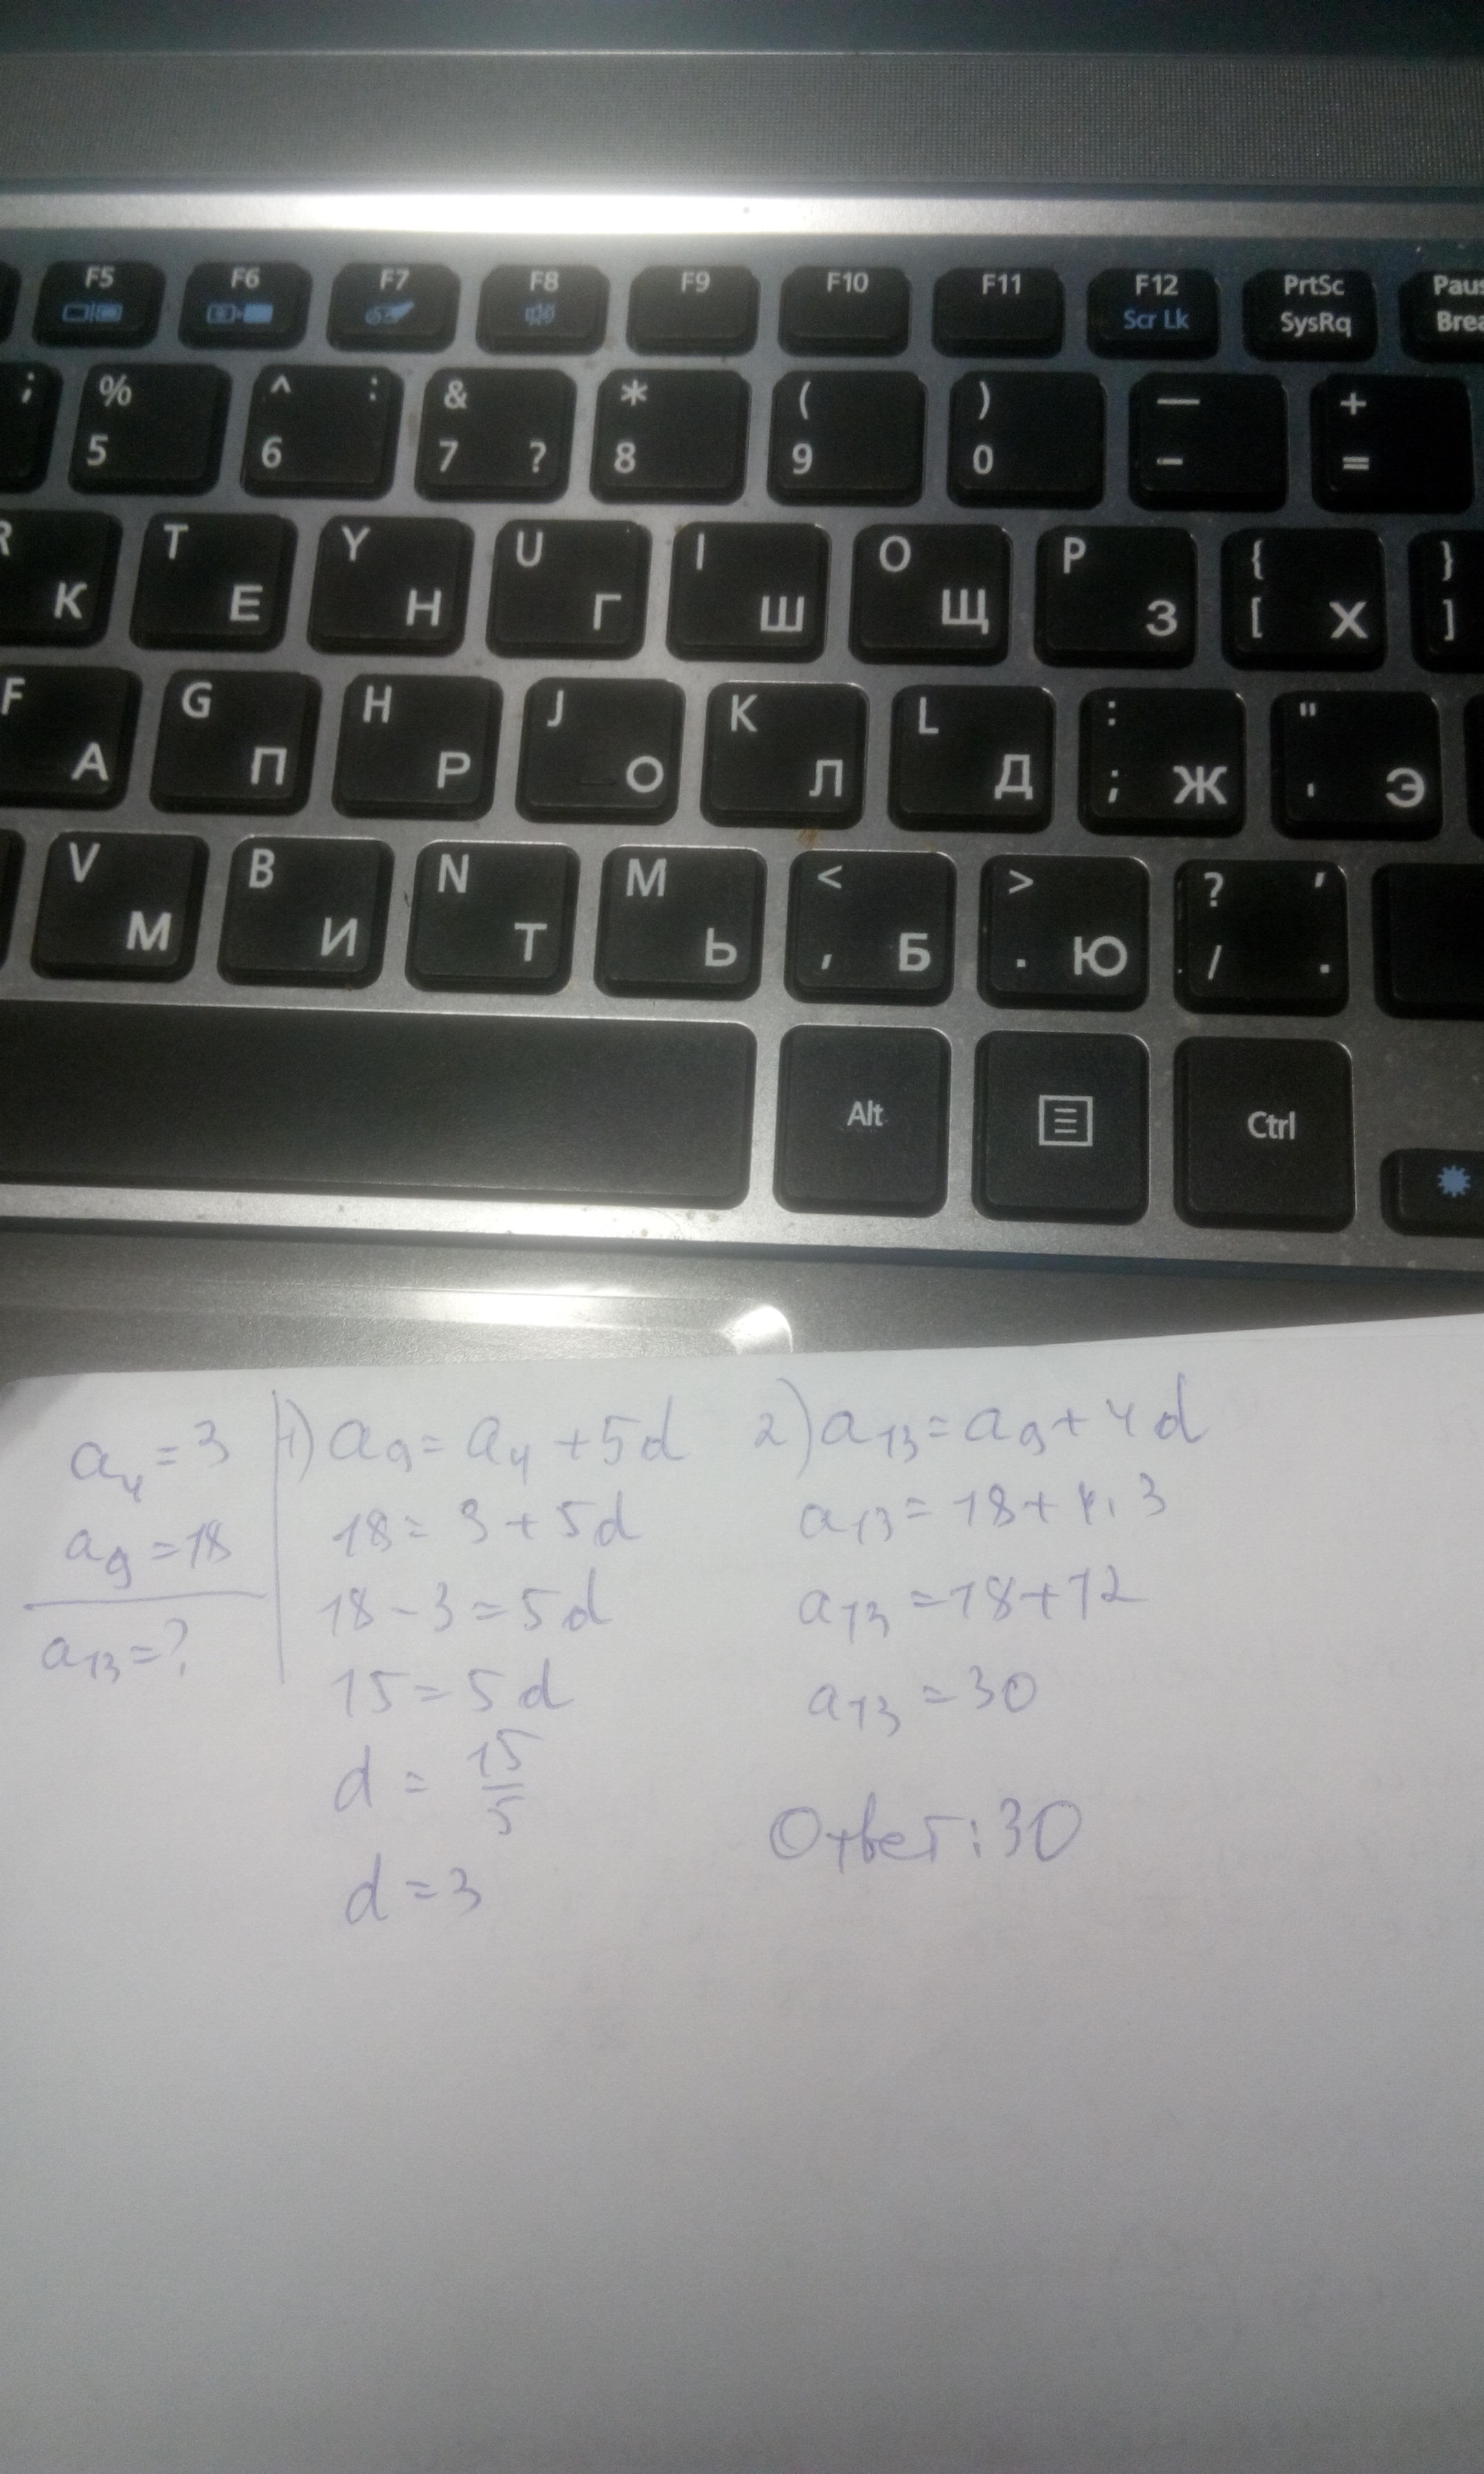 F5 F6 F7 F8 F9 F10 F11 F12 Scr Lk PrtSc SysRq
; % 5 ^ : 6 & 7 ? * 8 ( 9 ) 0 — - + =
R К T Е Y Н U Г I Ш O Щ P З { [ Х } ]
F А G П H Р J О K Л L Д : ; Ж " ' Э
V М B И N Т M Ь < , Б > . Ю ? / , .
Alt Ctrl
a₄ = 3
a₉ = 18
a₁₃ = ?
1) a₉ = a₄ + 5d
18 = 3 + 5d
18 - 3 = 5d
15 = 5d
d = 15/5
d = 3
2) a₁₃ = a₉ + 4d
a₁₃ = 18 + 4 · 3
a₁₃ = 18 + 12
a₁₃ = 30
Ответ: 30